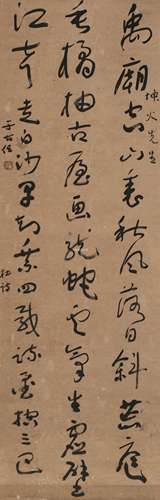 坤火先生
禹廟空山裏秋風落日斜荒庭
垂橘柚古屋畫龍蛇雲氣生虛壁
江聲走白沙早知乘四載疏鑿控三巴
杜詩
于右任